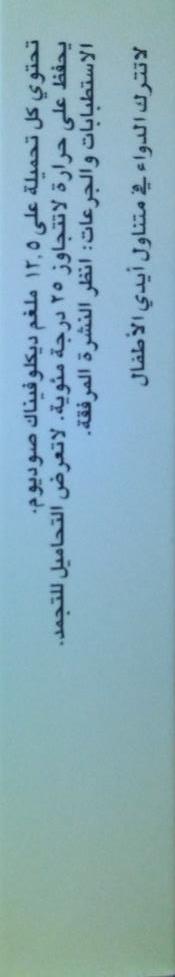 تحتوي كل تحميلة على ١٢,٥ ملغم ديكلوفيناك صوديوم.
يحفظ على حرارة لاتتجاوز ٢٥ درجة مئوية. لاتعرض التحاميل للتجمد.
الاستطبابات والجرعات: انظر النشرة المرفقة.
لاتترك الدواء في متناول أيدي الأطفال